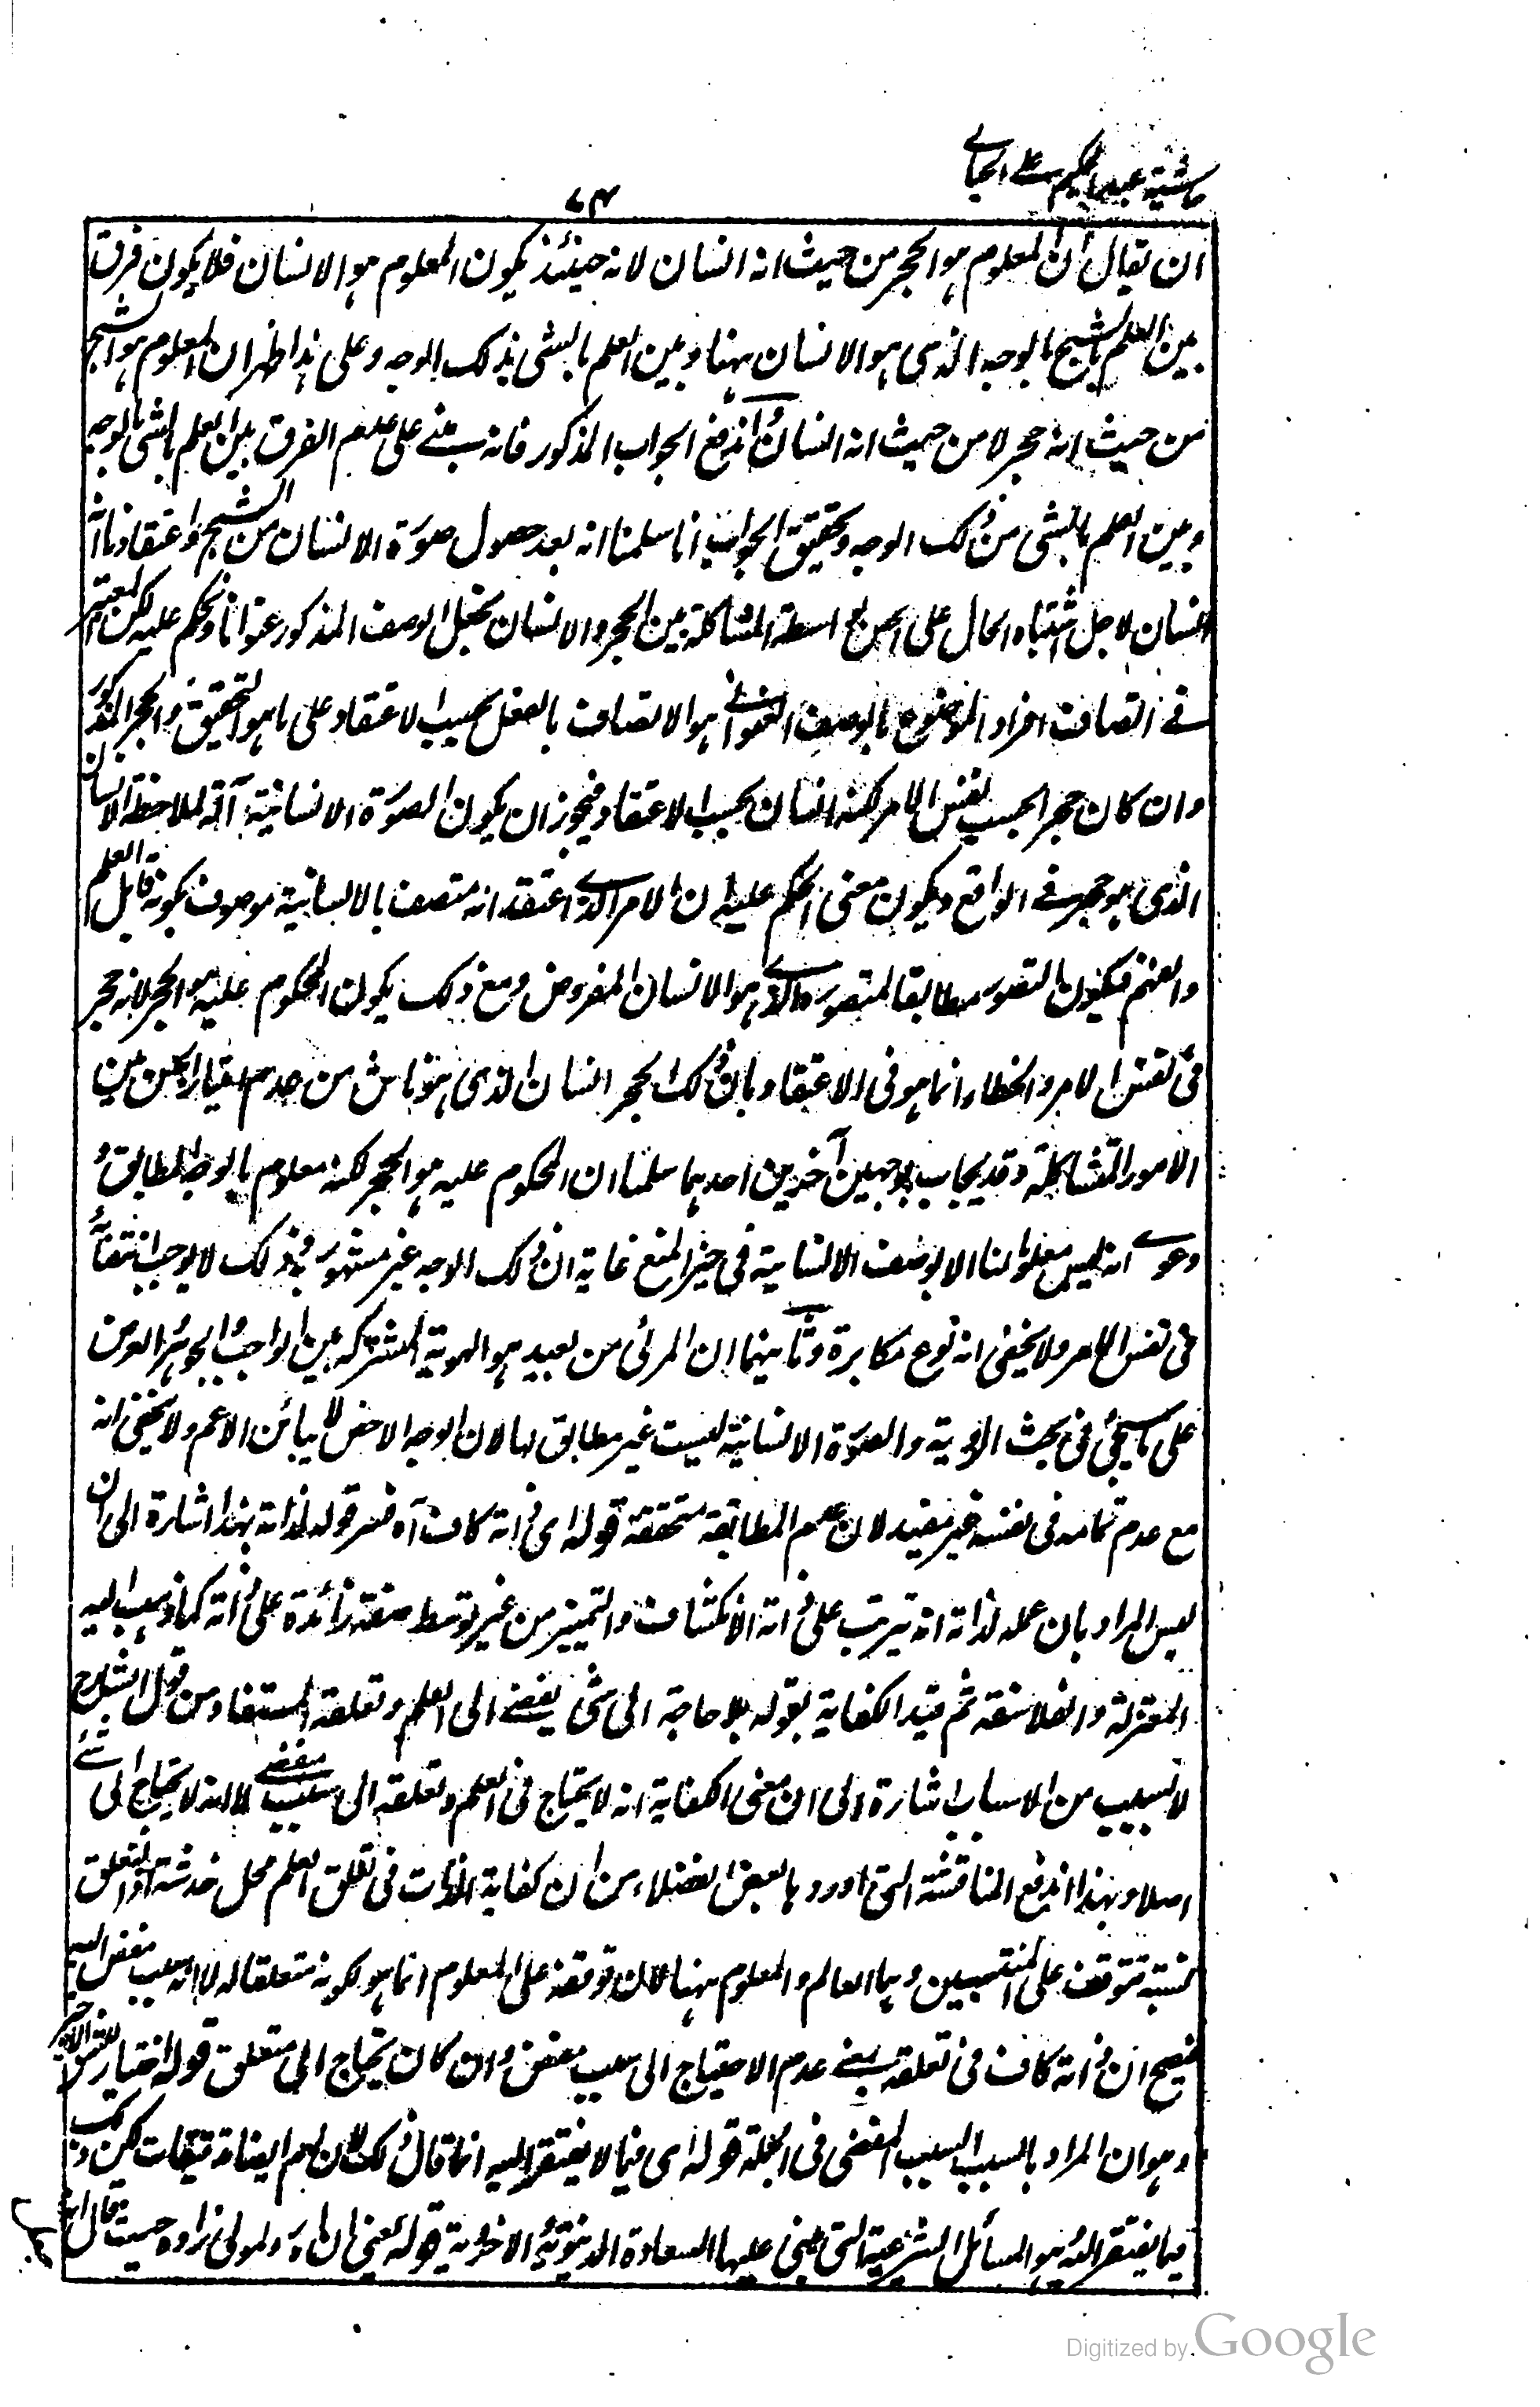 حاشية عبد الحكيم على الخيالى
٧٤
ان يقال ان المعلوم هو الحجر من حيث انه انسان لانه حينئذ يكون المعلوم هو الانسان فلا يكون فرق
بين العلم بالشبح بالوجه الذى هو الانسان ههنا وبين العلم بالشى بذلك الوجه وعلى هذا ظهر ان المعلوم هو الشبح
من حيث انه حجر لا من حيث انه انسان اندفع الجواب المذكور فانه مبنى على عدم الفرق بين العلم بالشى بالوجه
وبين العلم بالشى من ذلك الوجه وتحقيق الجواب انا سلمنا انه بعد حصول صورة الانسان من الشبح واعتقادنا انه
انسان لاجل اشتباه الحال على الحس بواسطة المشاكلة بين الحجر والانسان يجعل الوصف المذكور عنوانا ونحكم عليه لكن المعتبر
فى اتصاف افراد الموضوع بالوصف العنوانى هو الاتصاف بالفعل بحسب الاعتقاد على ما هو التحقيق والحجر المذكور
وان كان حجرا بحسب نفس الامر لكنه انسان بحسب الاعتقاد فيجوز ان يكون الصورة الانسانية آلة لملاحظة الانسان
الذى هو حجر فى الواقع ويكون معنى الحكم عليه ان الامر الذى اعتقد انه متصف بالانسانية موصوف بكونه قابل العلم
والفهم فيكون التصور مطابقا للمتصور الذى هو الانسان المفروض ومع ذلك يكون المحكوم عليه هو الحجر لانه حجر
فى نفس الامر والخطاء انما هو فى الاعتقاد بان ذلك الحجر انسان الذى هو ناش من عدم امتياز الحس بين
الامور المتشاكلة وقد يجاب بوجهين آخرين احدهما سلمنا ان المحكوم عليه هو الحجر لكنه معلوم بالوجه المطابق و
دعوى انه ليس معلوما لنا الا بوصف الانسانية فى حيز المنع غاية ان ذلك الوجه غير مشهور به وذلك لا يوجب انتفاءه
فى نفس الامر ولا يخفى انه نوع مكابرة وثانيهما ان المرئى من بعيد هو الهوية المشتركة بين الواجب والجوهر والعرض
على ما سيجئ فى بحث الروية والصورة الانسانية ليست غير مطابق لها لان الوجه الاخص لا يباين الاعم ولا يخفى انه
مع عدم تمامه فى نفسه غير مفيد لان عدم المطابقة متحققة قوله اى ذاته كاف آه فسر قوله لذاته بهذا اشارة الى ان
ليس المراد بان علمه لذاته انه يترتب على ذاته الانكشاف والتمييز من غير توسط صفة زائدة على ذاته كما ذهب اليه
المعتزلة والفلاسفة ثم قيد الكفاية بقوله بلا حاجة الى شى يفضى الى العلم وتعلقه المستفاد من قول الشارح
لا بسبب من الاسباب اشارة الى ان معنى الكفاية انه لا يحتاج فى العلم وتعلقه الى سبب مفضى لا انه لا يحتاج الى شئ
اصلا وبهذا اندفع المناقشة التى اوردها بعض الفضلاء من ان كفاية الذات فى تعلق العلم محل خدشة اذ التعلق
نسبة تتوقف على المنتسبين وهما العالم والمعلوم ههنا لان توقفه على المعلوم انما هو لكونه متعلقا له لا انه سبب مفض اليه
فيصح ان ذاته كاف فى تعلقه بمعنى عدم الاحتياج الى سبب مفض وان كان يحتاج الى متعلق قوله اختيار للشق الاخير
وهو ان المراد بالسبب السبب المفضى فى الجملة قوله اى فيما لا يفتقر اليه انما قال ذلك لان لهم ايضا تدقيقات لكن ذلك
فيما يفتقر اليه هو المسائل الشرعية التى يبتنى عليها السعادة الدنيوية والاخروية قوله يعنى ان